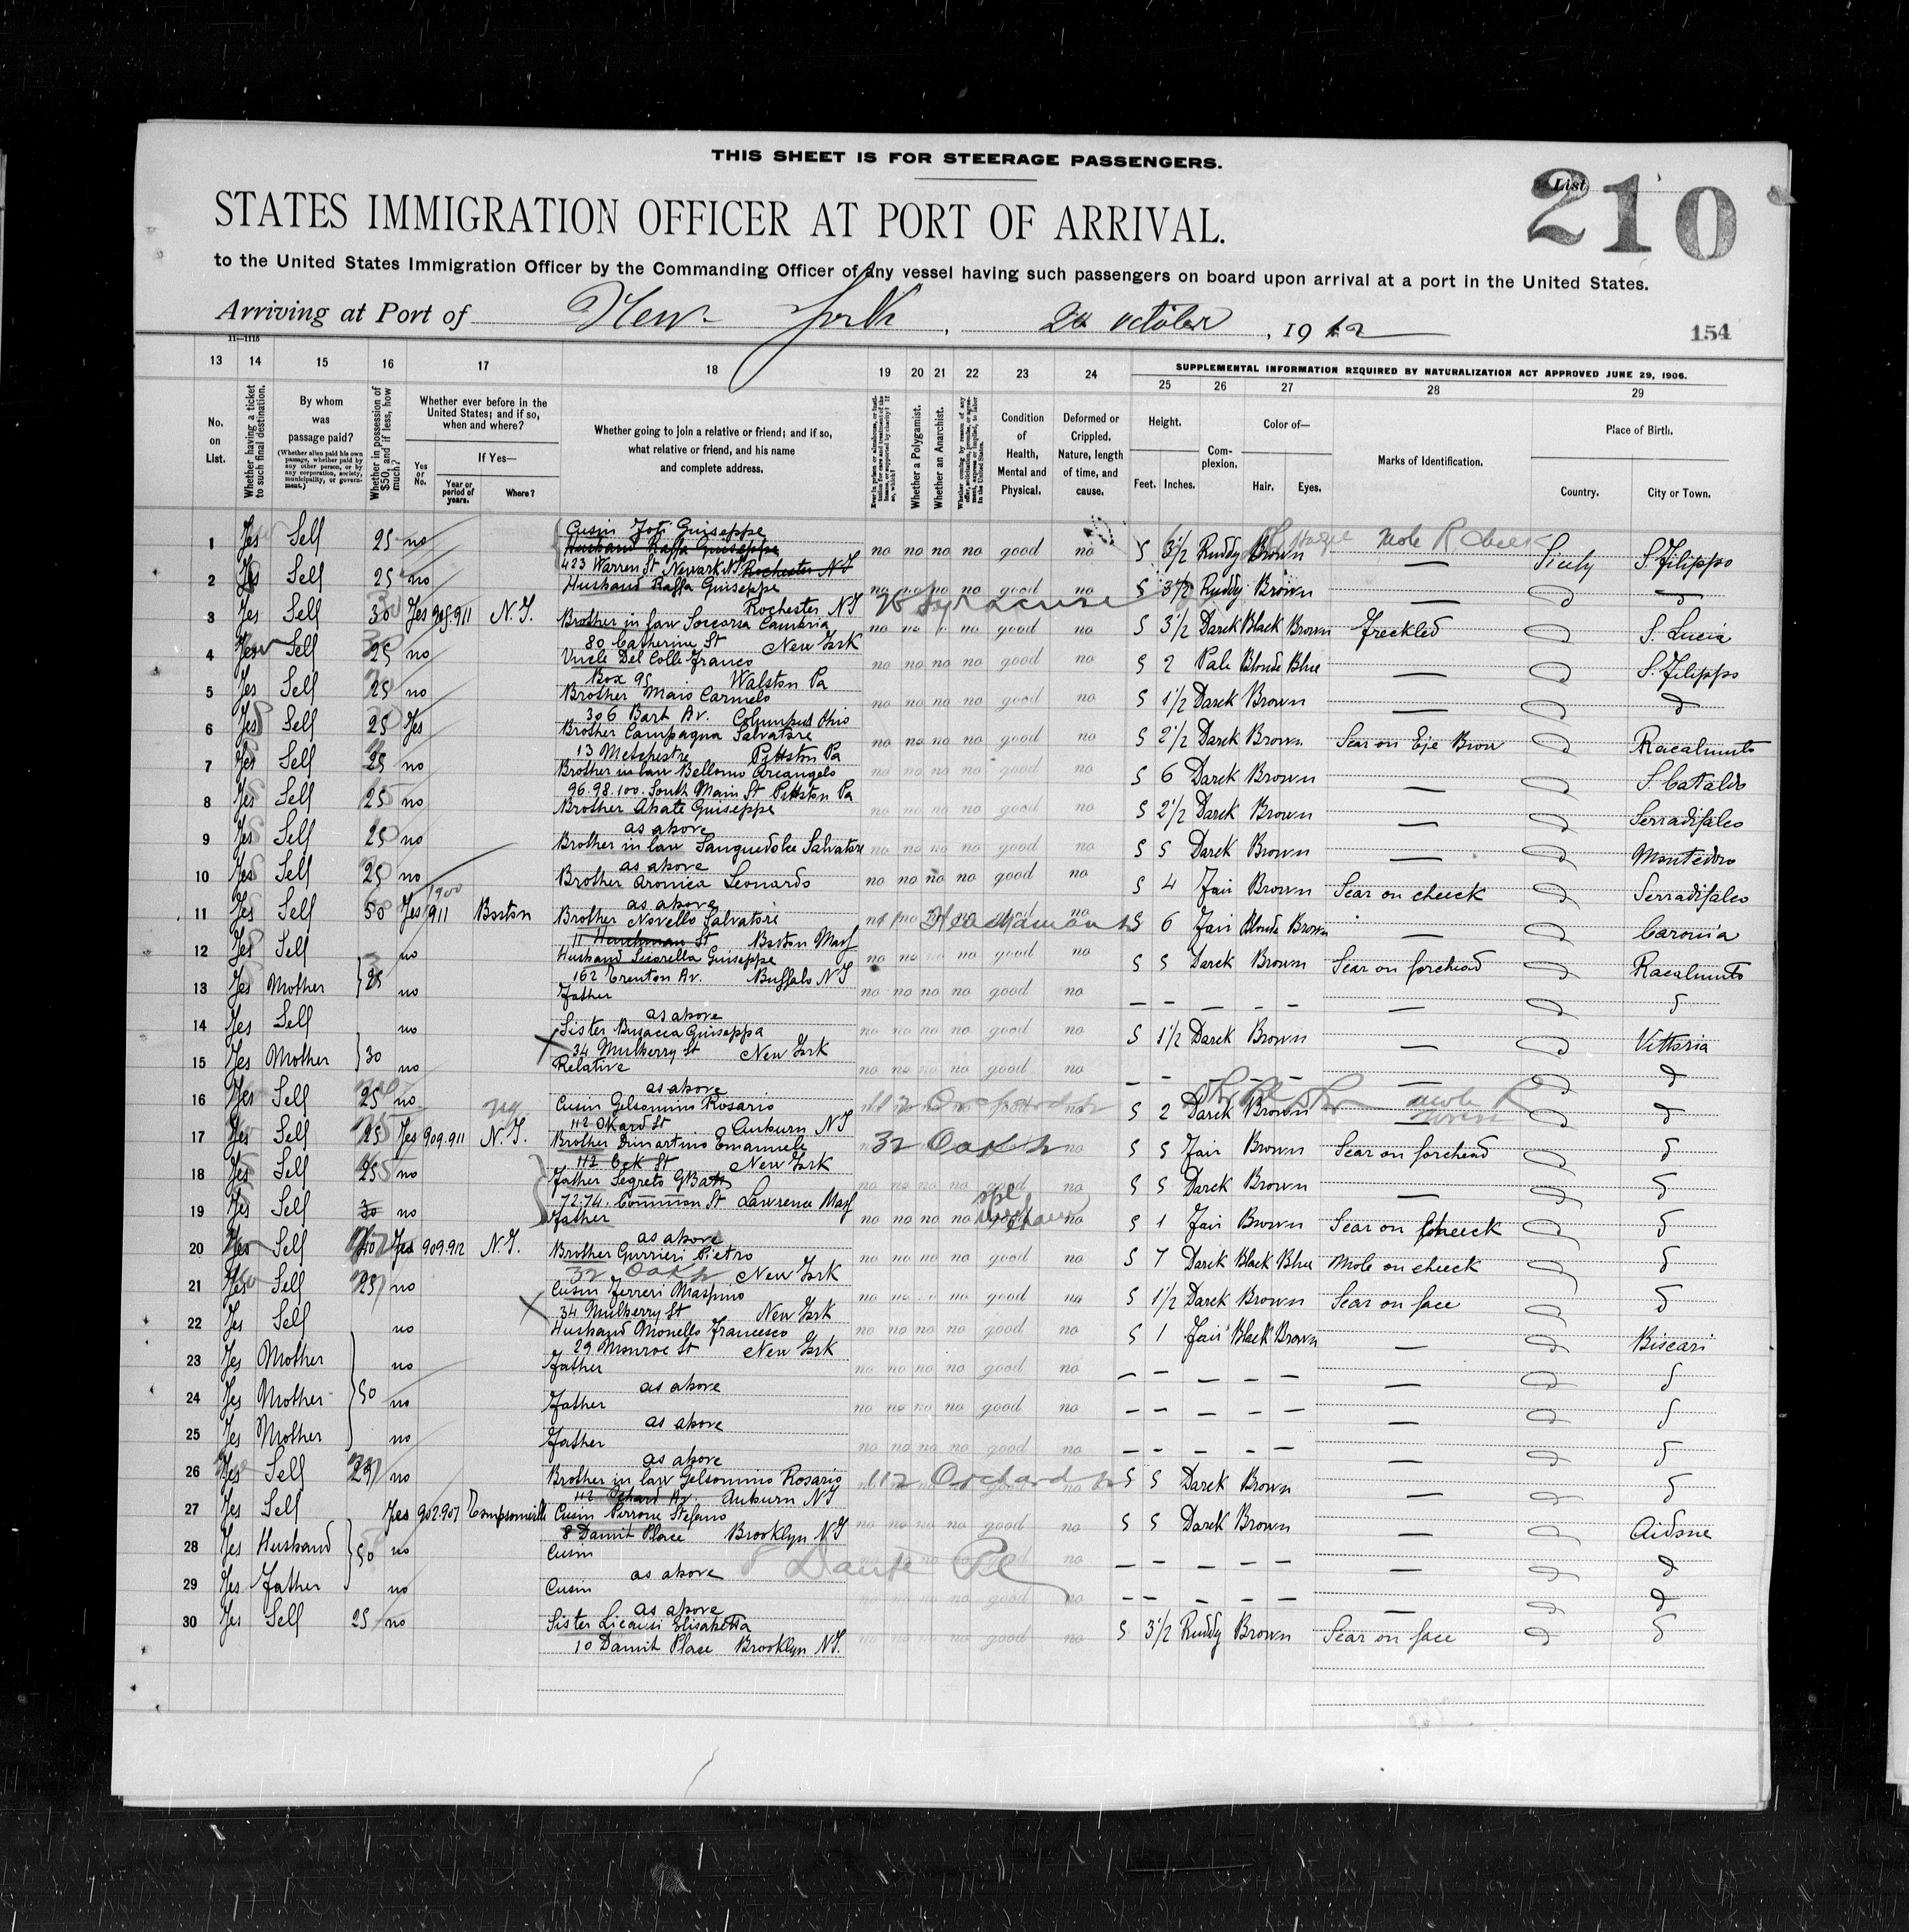 THIS SHEET IS FOR STEERAGE PASSENGERS.
List 210
STATES IMMIGRATION OFFICER AT PORT OF ARRIVAL.
to the United States Immigration Officer by the Commanding Officer of any vessel having such passengers on board upon arrival at a port in the United States.
Arriving at Port of New York, October, 1912
154
11—1115
13 14 15 16 17 18 19 20 21 22 23 24 25 26 27 28 29
SUPPLEMENTAL INFORMATION REQUIRED BY NATURALIZATION ACT APPROVED JUNE 29, 1906.
No. on List.
Whether having a ticket to such final destination.
By whom was passage paid?
(Whether alien paid his own passage, whether paid by any other person, or by any corporation, society, municipality, or government.)
Whether in possession of $50, and if less, how much?
Whether ever before in the United States; and if so, when and where?
Yes or No.
If Yes—
Year or period of years.
Where?
Whether going to join a relative or friend; and if so, what relative or friend, and his name and complete address.
Whether a Polygamist.
Whether an Anarchist.
Condition of Health, Mental and Physical.
Deformed or Crippled. Nature, length of time, and cause.
Height.
Feet. Inches.
Complexion.
Color of—
Hair. Eyes.
Marks of Identification.
Place of Birth.
Country. City or Town.
1 Yes Self 25 no Cusin Foti Guiseppe
Husband Raffa Guiseppe no no no no good no 5 3½ Ruddy Brown mole R. cheek — Sicily S. Filippo
423 Warren St Newark NJ Rochester NY
2 Yes Self 25 no Husband Raffa Guiseppe no no no no good no 5 3½ Ruddy Brown —
Rochester NY Syracuse
3 Yes Self 30 Yes 905.911 N.Y. Brother in law Soccorsa Cambria no no no good no 5 3½ Darek Black Brown Freckled S. Lucia
80 Catherine St New York
4 Yes Self 25 no Uncle Del Colle Franco no no no no good no 5 2 Pale Blonde Blue — S. Filippo
Box 95 Walston Pa
5 Yes Self 25 no Brother Maio Carmelo no no no no good no 5 1½ Darek Brown —
306 Bart Av. Columpus Ohio
6 Yes Self 25 Yes Brother Campagna Salvatore no no no no good no 5 2½ Darek Brown Scar on Eje Brow Racalmuto
13 Pittston Pa
7 Yes Self 25 no Brother in law Bellomo Arcangelo no no no no good no 5 6 Darek Brown — S. Cataldo
96.98.100. South Main St Pittston Pa
8 Yes Self 25 no Brother Abate Guiseppe no no no no good no 5 2½ Darek Brown — Serradifalco
as above
9 Yes Self 25 no Brother in law Sanguedolce Salvatore no no no no good no 5 5 Darek Brown — Montedoro
as above
10 Yes Self 25 no Brother Aronica Leonardo no no no no good no 5 4 Fair Brown Scar on cheeck Serradifalco
as above
11 Yes Self 50 Yes 1900 911 Boston Brother Novello Salvatore 5 6 Fair Blonde Brown — Caronia
11 St Boston Mass
12 Yes Self no Husband Guiseppe no no no no good no 5 5 Darek Brown Scar on forehead Racalmuto
162 Trenton Av. Buffalo NY
13 Yes Mother 25 no Father no no no no good no — — — — — —
as above
14 Yes Self no Sister Busacca Guiseppa no no no no good no 5 1½ Darek Brown — Vittoria
34 Mulberry St New York
15 Yes Mother 30 no Relative no no no no good no — — — — — —
as above
16 Yes Self 25 no Cusin Gelsomino Rosario 5 2 Darek Brown mole R
112 Okard St Auburn NY
17 Yes Self 25 Yes 909.911 N.Y. Brother Dimartino Emanuele 32 Oak St no 5 5 Fair Brown Scar on forehead
112 Oek St New York
18 Yes Self 25 no Father Segreto GBatt no no no no good no 5 5 Darek Brown —
72.74. Common St Lawrence Mass
19 Yes Self 30 no Father no no no no good no 5 1 Fair Brown Scar on cheeck
as above
20 Yes Self Yes 909.912 N.Y. Brother Gurrieri Pietro no no no no good no 5 7 Darek Black Blue Mole on cheeck
32 Oak St New York
21 Yes Self 25 no Cusin Ferreri Maspino no no no good no 5 1½ Darek Brown Scar on face
34 Mulberry St New York
22 Yes Self no Husband Monello Francesco no no no no good no 5 1 Fair Black Brown — Biscari
29 Monroe St New York
23 Yes Mother no Father no no no no good no — — — — — —
as above
24 Yes Mother 50 no Father no no no no good no — — — — — —
as above
25 Yes Mother no Father no no no no good no — — — — — —
as above
26 Yes Self 25 no Brother in law Gelsomino Rosario 112 Orchard St 5 5 Darek Brown —
112 Ochard Av. Auburn NY
27 Yes Self Yes 902.907 Tompsonville Cusin Perrone Stefano no no no no good no 5 5 Darek Brown — Aidone
8 Damit Place Brooklyn NY
28 Yes Husband 50 no Cusin 8 Dante Pl no — — — — — —
as above
29 Yes Father no Cusin no no no no good no — — — — — —
as above
30 Yes Self 25 no Sister Licausi Elisabetta no no no no good no 5 3½ Ruddy Brown Scar on face
10 Damit Place Brooklyn NY.